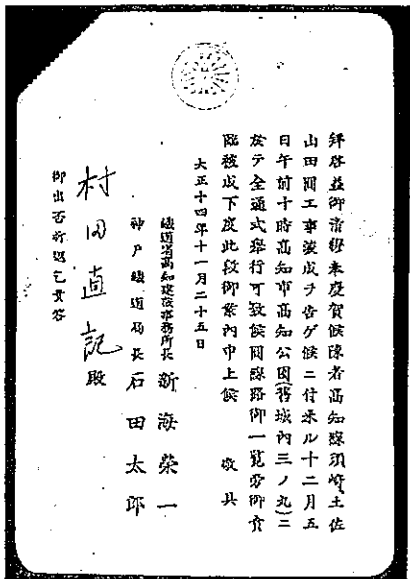 拜啓益御清穆奉慶賀候陳者高知線須崎土佐
山田間工事竣成ヲ告ゲ候ニ付來ル十二月五
日午前十時高知市高知公園(舊城內三ノ丸)ニ
於テ全通式擧行可致候間線路御一覽旁御賁
臨被成下度此段御案內申上候 敬具
大正十四年十一月二十五日
鐵道省高知建設事務所長 新海榮一
神戶鐵道局長 石田太郎
村田直記殿
御出否折返乞貴答